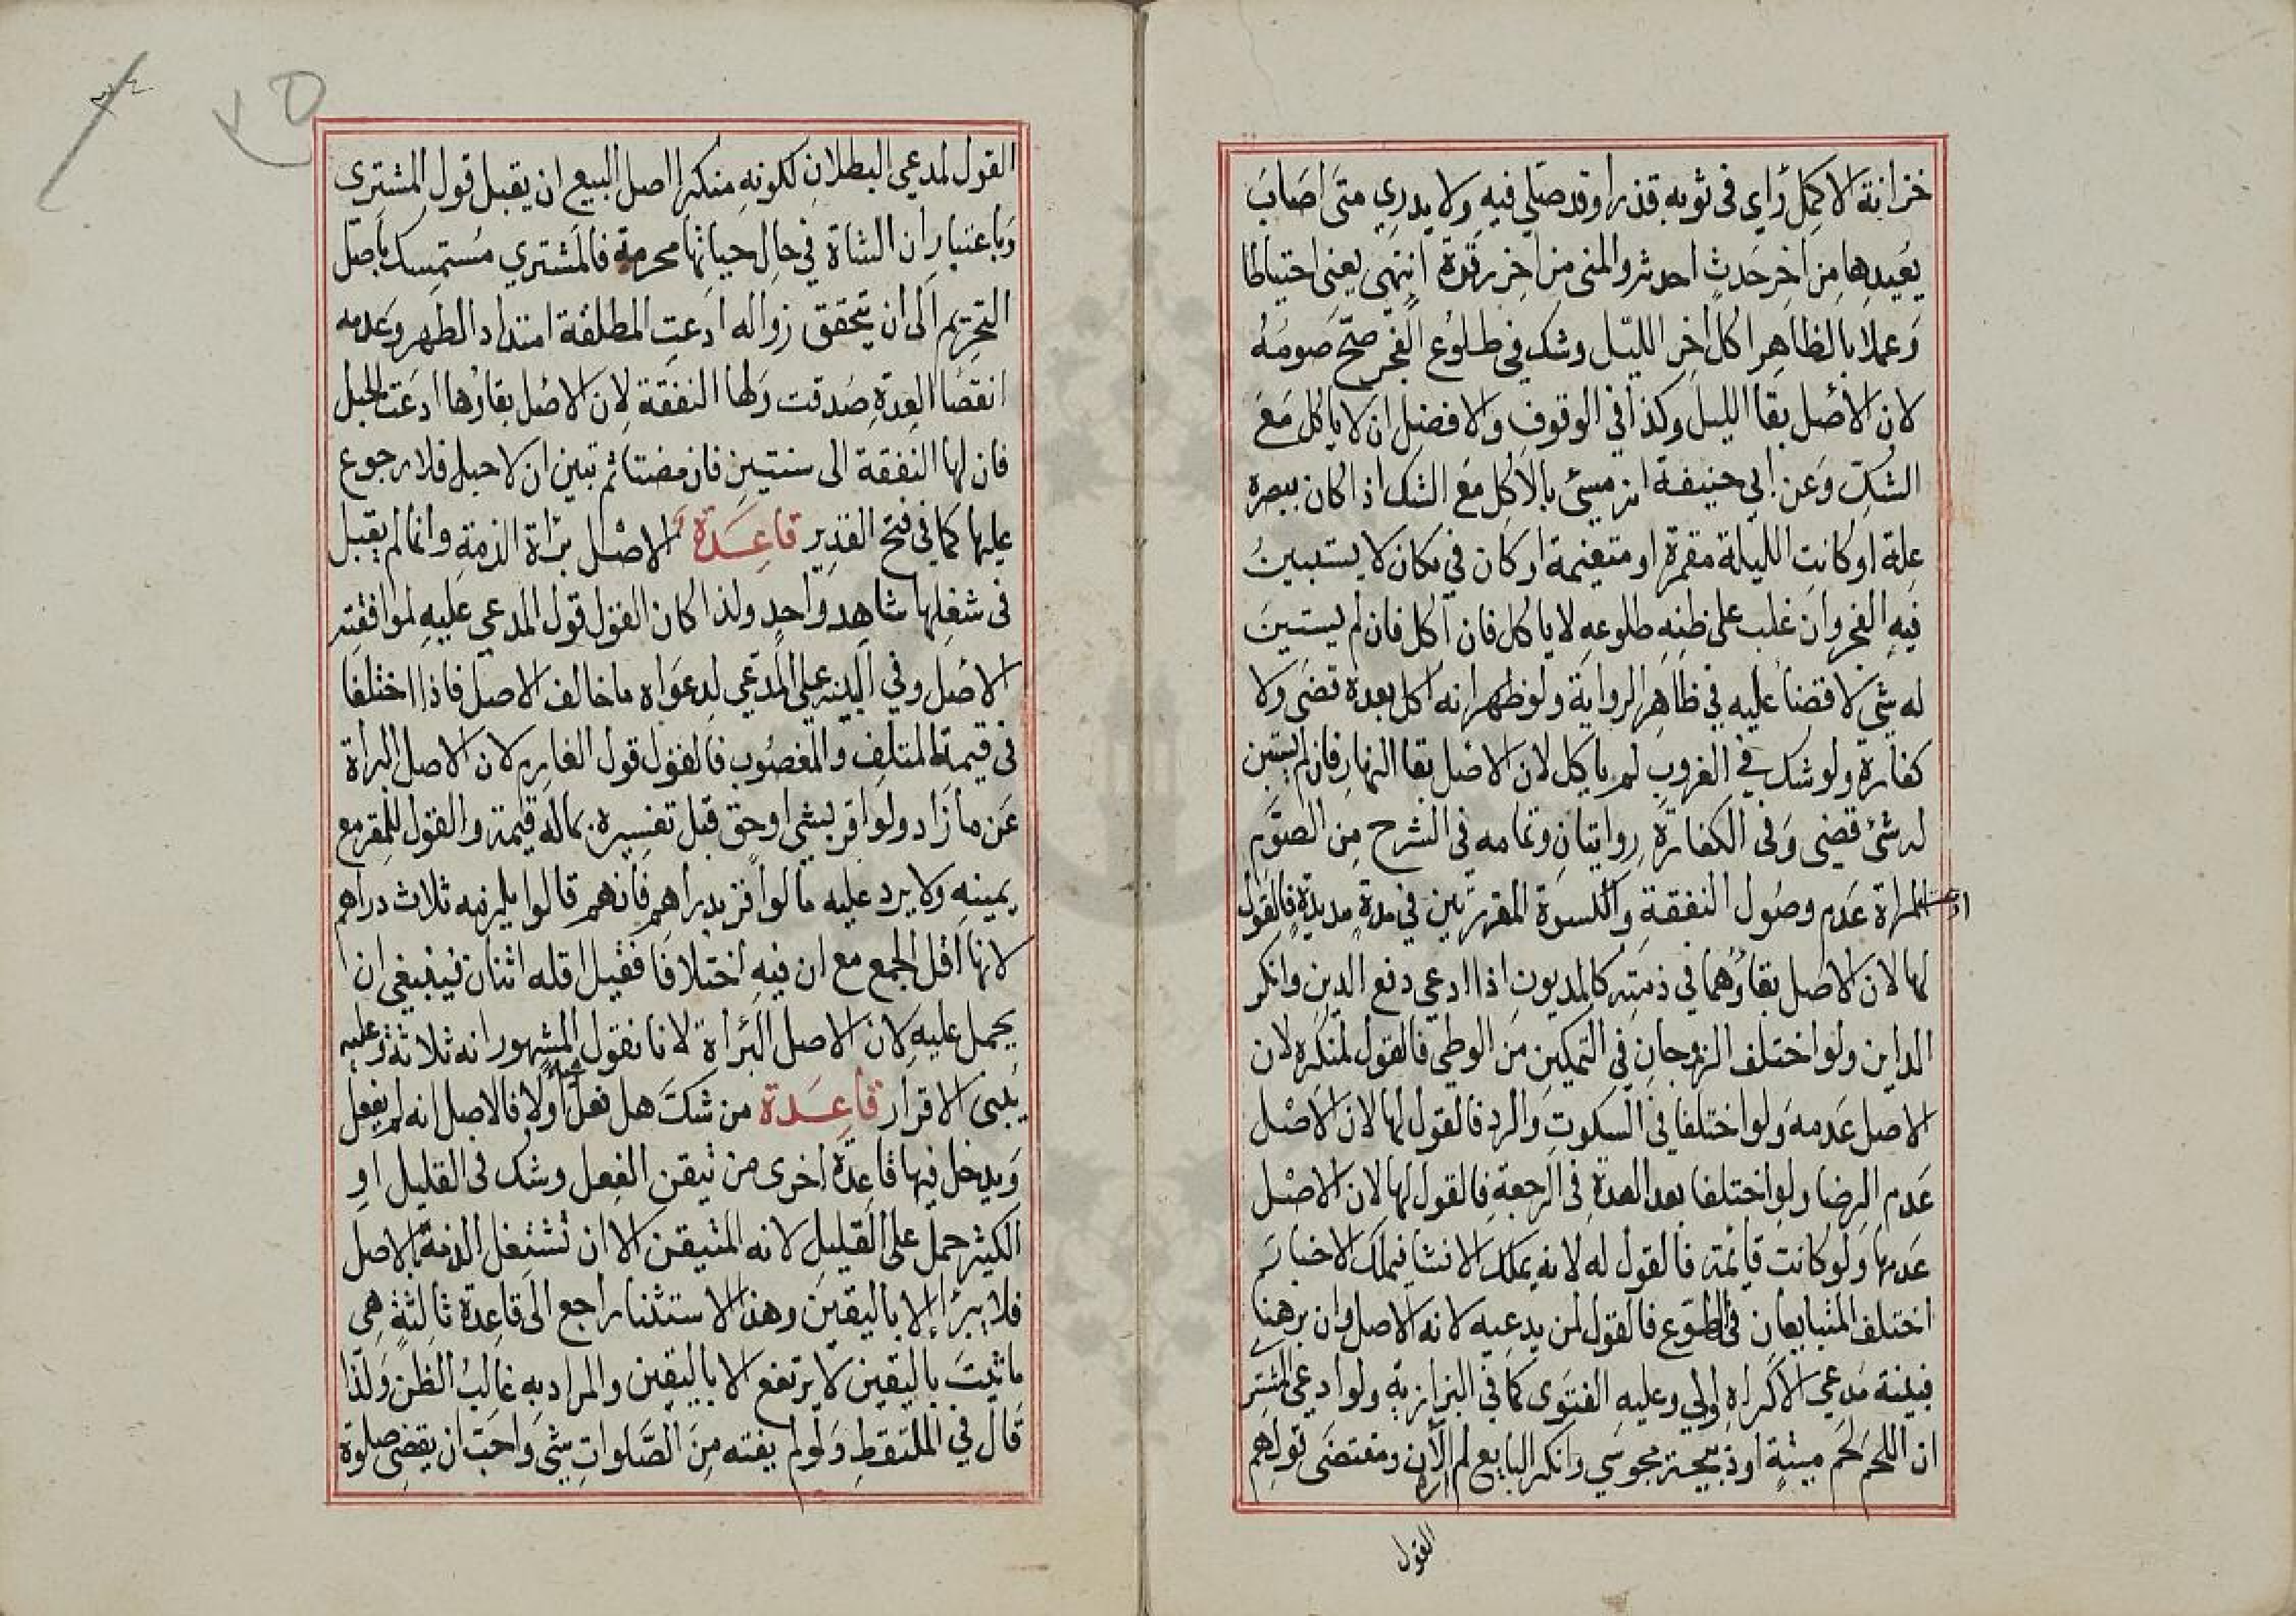 خزانة الاكمل رأى فى ثوبه قذرا وقد صلى فيه ولا يدري متى اصاب
يعيدها من اخر حدث احدثه والمنى من اخر رقدة انتهى يعنى احتياطا
وعملا بالظاهر اكل اخر الليل وشك في طلوع الفجر صح صومه
لان الأصل بقا الليل وكذا في الوقوف والافضل ان لا ياكل مع
الشك وعن ابي حنيفة انه مسئ بالاكل مع الشك اذا كان ببصره
علة او كانت الليلة مقمرة او متغيمة او كان في مكان لا يستبين
فيه الفجر وان غلب على ظنه طلوعه لا ياكل فان اكل فان لم يستبين
له شئ لا قضا عليه في ظاهر الرواية ولو ظهر انه اكل بعده قضى ولا
كفارة ولو شك في الغروب لم ياكل لان الاصل بقا النهار فان لم يستبين
له شئ قضى وفى الكفارة روايتان وتمامه في الشرح من الصوم
ادعت المراة عدم وصول النفقة والكسوة المقررتين في مدة مديدة فالقول
لها لان الاصل بقاؤهما في ذمته كالمديون اذا ادعى دفع الدين وانكر
الداين ولو اختلف الزوجان في التمكين من الوطى فالقول لمنكره لان
الاصل عدمه ولو اختلفا فى السكوت والرد فالقول لها لان الاصل
عدم الرضا ولو اختلفا بعد العدة فى الرجعة فالقول لها لان الاصل
عدمها ولو كانت قايمة فالقول له لانه يملك الانشا فيملك الاخبار
اختلف المتبايعان فى الطوع فالقول لمن يدعيه لانه الاصل وان برهنا
فبينة مدعي الاكراه اولى وعليه الفتوى كما في البزازية ولو ادعى المشتر
ان اللحم لحم ميتة او ذبيحة مجوسي وانكر البايع لم اره الآن ومقتضى قولهم
القول
٧٥
القول لمدعي البطلان لكونه منكرا اصل البيع ان يقبل قول المشترى
وباعتبار ان الشاة في حال حياتها محرمة فالمشتري مستمسك باصل
التحريم الى ان يتحقق زواله ادعت المطلقة امتداد الطهر وعدمه
انقضا العدة صدقت ولها النفقة لان الاصل بقاؤها ادعت الحبل
فان لها النفقة الى سنتين فان مضتا ثم تبين ان لا حبل فلا رجوع
عليها كما في فتح القدير قاعدة الاصل براة الذمة وانما لم يقبل
فى شغلها شاهد واحد ولذا كان القول قول المدعى عليه لموافقته
الاصل وفي البينة على المدعي لدعواه ما خالف الاصل فاذا اختلفا
فى قيمة المتلف والمغصوب فالقول قول الغارم لان الاصل البراة
عن ما زاد ولو اقر بشئ او حق قبل تفسيره بما له قيمة والقول للمقر مع
يمينه ولا يرد عليه ما لو اقر بدراهم فانهم قالوا يلزمه ثلاث دراهم
لانها اقل الجمع مع ان فيه اختلافا فقيل اقله اثنان فينبغي ان
يحمل عليه لان الاصل البراة لانا نقول المشهور انه ثلاثة وعليه
يبنى الاقرار قاعدة من شك هل فعل شيئا او لا فالاصل انه لم يفعل
ويدخل فيها قاعدة اخرى من تيقن الفعل وشك فى القليل او
الكثير حمل على القليل لانه المتيقن الا ان تشتغل الذمة بالاصل
فلا يبرأ الا باليقين وهذا الاستثنا راجع الى قاعدة ثالثة هي
ما ثبت باليقين لا يرتفع الا باليقين والمراد به غالب الظن ولذا
قال في الملتقط ولو لم يفته من الصلوات شئ واحب ان يقضى صلوة